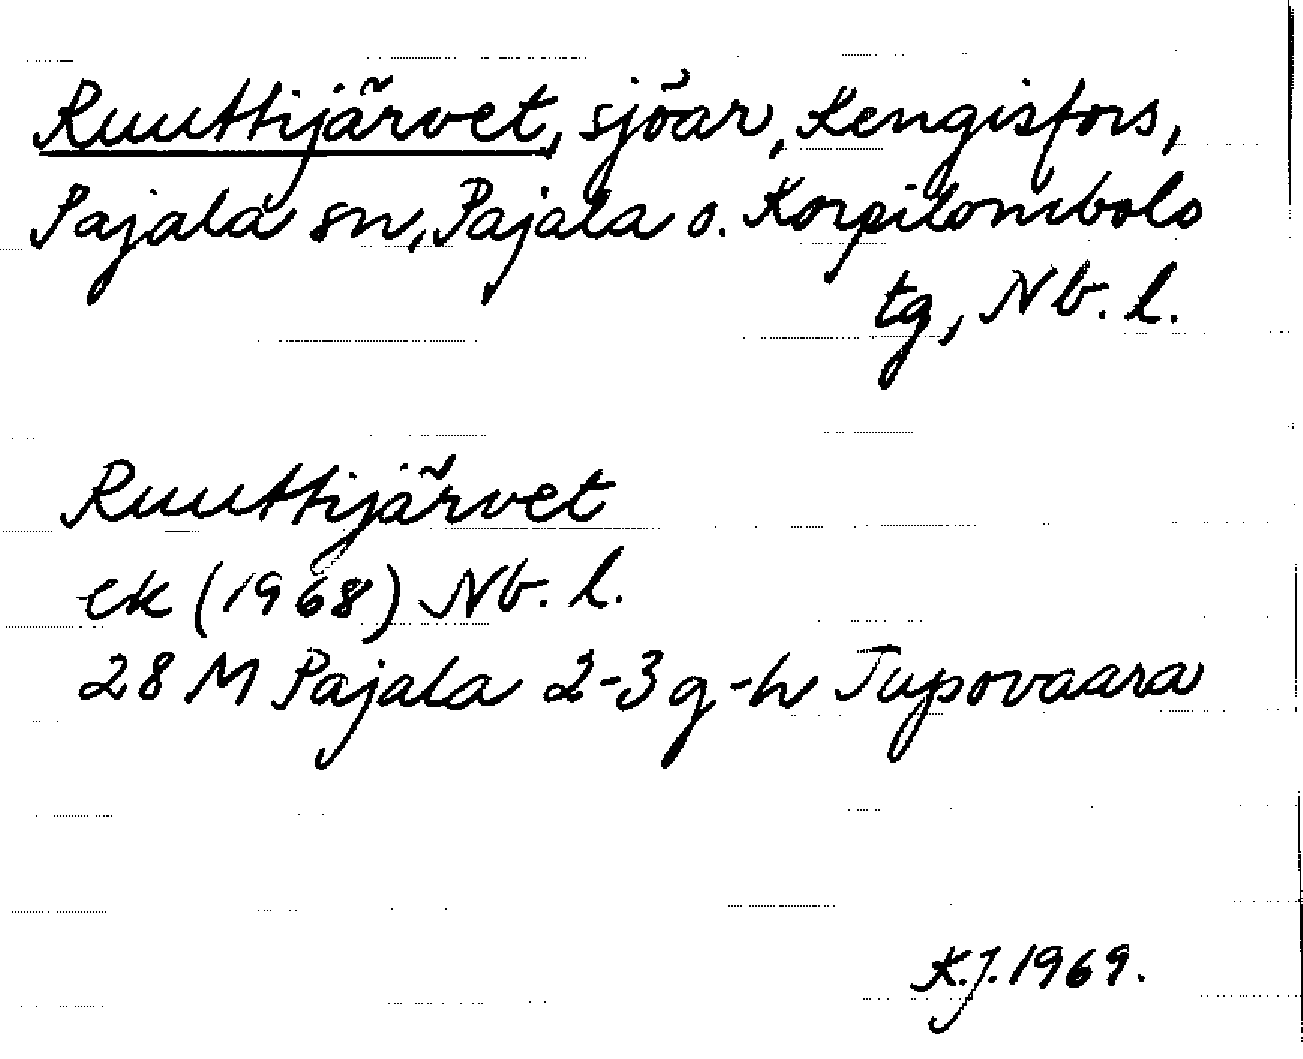 Ruuttijärvet, sjöar, Kengisfors,
Pajala sn, Pajala o. Korpilombolo
tg, Nb. l.
Ruuttijärvet
ek (1968) Nb. l.
28 M Pajala 2-3 g-h Jupovaara
K.J. 1969.